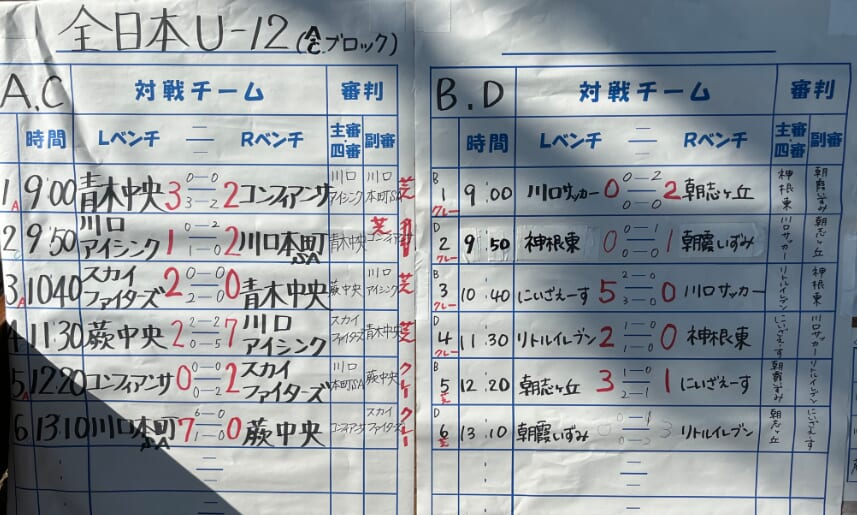 全日本U-12(ACブロック)
A.C 対戦チーム 審判
時間 Lベンチ — Rベンチ 主審・四審 副審
1 A 9:00 青木中央 3 0-0 3-2 2 コンフィアンサ 川口アイシング 川口本町SA 芝
2 9:50 川口アイシング 1 0-2 1-0 2 川口本町SA 青木中央 コンフィアンサ 芝
3 A 10:40 スカイファイターズ 2 0-0 2-0 0 青木中央 蕨中央 川口アイシング 芝
4 11:30 蕨中央 2 2-2 0-5 7 川口アイシング スカイファイターズ 青木中央 芝
5 A 12:20 コンフィアンサ 0 0-0 0-2 2 スカイファイターズ 川口本町SA 蕨中央 クレー
6 13:10 川口本町SA 7 6-0 1-0 0 蕨中央 コンフィアンサ スカイファイターズ クレー
B.D 対戦チーム 審判
時間 Lベンチ — Rベンチ 主審・四審 副審
B 1 クレー 9:00 川口サッカー 0 0-2 0-0 2 朝志ヶ丘 神根東 朝霞いずみ
D 2 クレー 9:50 神根東 0 0-1 0-0 1 朝霞いずみ 川口サッカー 朝志ヶ丘
B 3 クレー 10:40 にいざえーす 5 2-0 3-0 0 川口サッカー リトルイレブン 神根東
D 4 クレー 11:30 リトルイレブン 2 1-0 1-0 0 神根東 にいざえーす 川口サッカー
B 5 芝 12:20 朝志ヶ丘 3 1-0 2-1 1 にいざえーす 朝霞いずみ リトルイレブン
D 6 芝 13:10 朝霞いずみ 0 0-1 0-2 3 リトルイレブン 朝志ヶ丘 にいざえーす